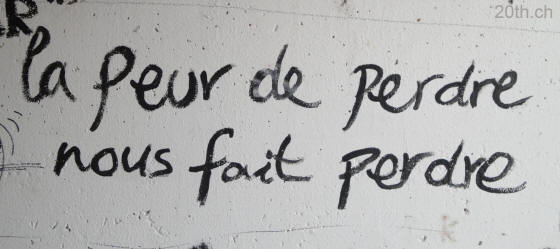 20th.ch
R
la peur de perdre
nous fait perdre